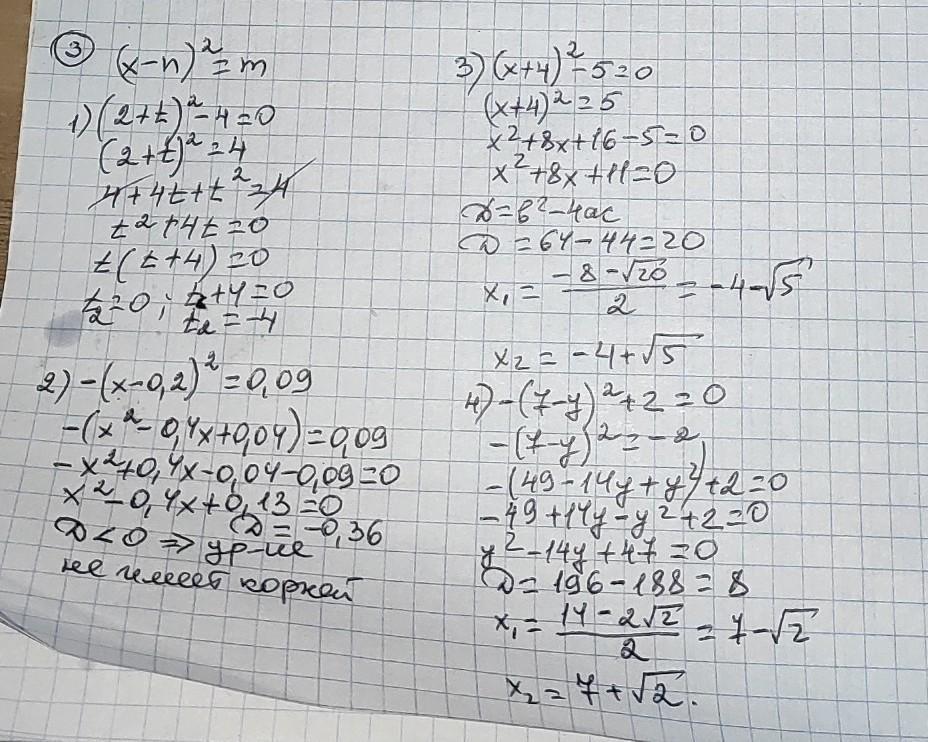 ③ (x-n)² = m
1) (2+t)² - 4 = 0
(2+t)² = 4
4 + 4t + t² = 4
t² + 4t = 0
t(t+4) = 0
t₂ = 0; t + 4 = 0
t₂ = -4
2) -(x-0,2)² = 0,09
-(x² - 0,4x + 0,04) = 0,09
-x² + 0,4x - 0,04 - 0,09 = 0
x² - 0,4x + 0,13 = 0
D < 0 ⇒ ур-ие D = -0,36
не имеет корней
3) (x+4)² - 5 = 0
(x+4)² = 5
x² + 8x + 16 - 5 = 0
x² + 8x + 11 = 0
D = b² - 4ac
D = 64 - 44 = 20
x₁ = (-8 - √20)/2 = -4 - √5
x₂ = -4 + √5
4) -(7-y)² + 2 = 0
-(7-y)² = -2
-(49 - 14y + y²) + 2 = 0
-49 + 14y - y² + 2 = 0
y² - 14y + 47 = 0
D = 196 - 188 = 8
x₁ = (14 - 2√2)/2 = 7 - √2
x₂ = 7 + √2.